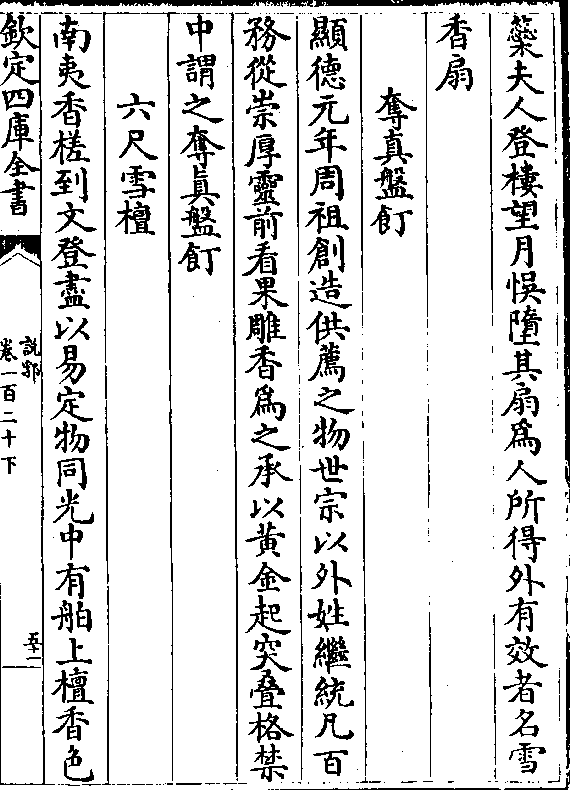 蘂夫人登樓望月悞墮其扇爲人所得外有效者名雪
香扇
奪真盤飣
顯德元年周祖創造供薦之物世宗以外姓繼統凡百
務從崇厚靈前看果雕香爲之承以黃金起突疊格禁
中謂之奪眞盤飣
六尺雪檀
南夷香槎到文登盡以易定物同光中有舶上檀香色
欽定四庫全書
說郛
卷一百二十下
五十一